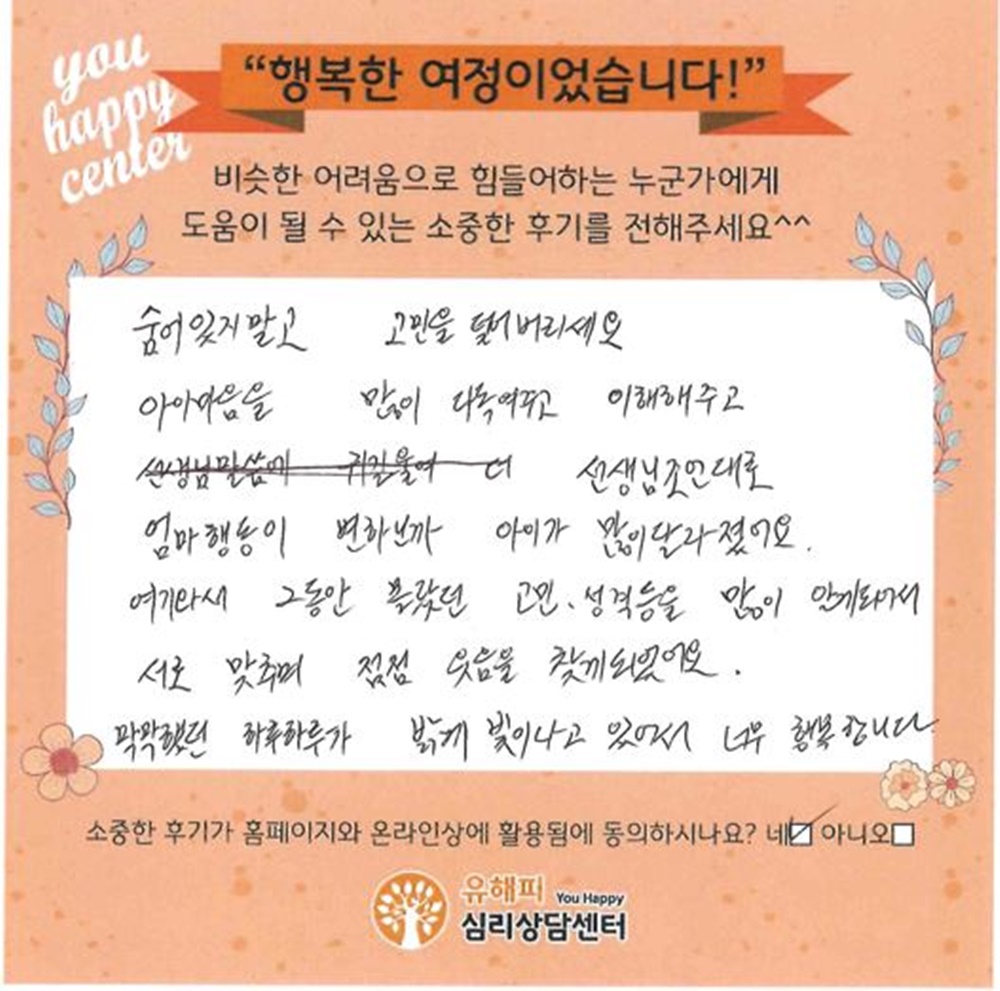 you
happy
center
“행복한 여정이었습니다!”
비슷한 어려움으로 힘들어하는 누군가에게
도움이 될 수 있는 소중한 후기를 전해주세요^^
숨어있지말고 고민을 털어버리세요
아이마음을 많이 다독여주고 이해해주고
선생님말씀에 귀길울여 더 선생님조언대로
엄마행동이 변하닌까 아이가 많이달라졌어요.
여기와서 그동안 몰랐던 고민.성격등을 많이 알게되어서
서로 맞추며 점점 웃음을 찾게되었어요.
막막했던 하루하루가 밝게 빛이나고 있어서 너무 행복합니다.
소중한 후기가 홈페이지와 온라인상에 활용됨에 동의하시나요? 네☑ 아니오□
유해피 You Happy
심리상담센터